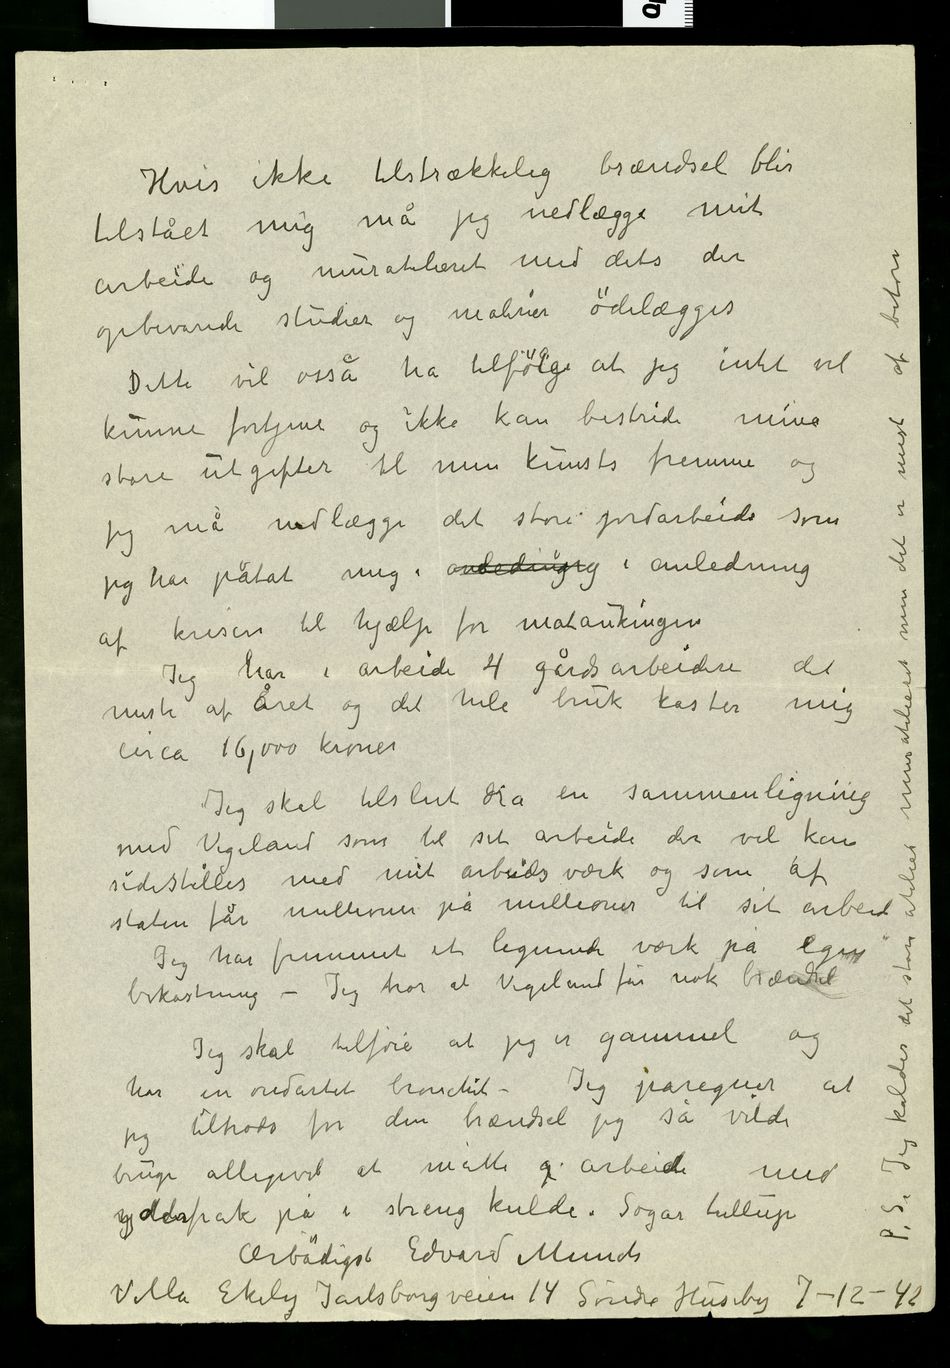 Hvis ikke tilstrækkelig brændsel blir
tilstået mig må jeg nedlægge mit
arbeide og muratelieret med dets der
opbevarede studier og malerier ödelægges
Dette vil osså ha tilfölge at jeg intet vil
kunne fortjene og ikke kan bestride mine
store utgifter til min kunsts fremme og
jeg må nedlægge det store jordarbeide som
jeg har påtat mig i anledning
af krisen til hjælp for mataukingen
Jeg har i arbeide 4 gårdsarbeidere det
meste af Året og det hele bruk koster mig
circa 16,000 kroner
Jeg skal tilslut dra en sammenligning
med Vigeland som til sit arbeide der vel kan
sidestilles med mit arbeidsværk og som af
staten får millioner på millioner til sit arbeid
Jeg har fremmet et lignende værk på egen
bekostning – Jeg tror at Vigeland får nok brændsel
Jeg skal tilföie at jeg er gammel og
har en ondartet bronchit – Jeg påregner at
jeg tiltrods for den brændsel jeg så vilde
bruge alligevel at måtte arbeide med
yderfrak på i streng kulde. Sogar tillup
Ærbödigst Edvard Munch
Villa Ekely Jarlsborgveien 14 Söndre Huseby 7-12-42
P.S. Jeg kalder det store atelier muratelieret men det er mest af betora